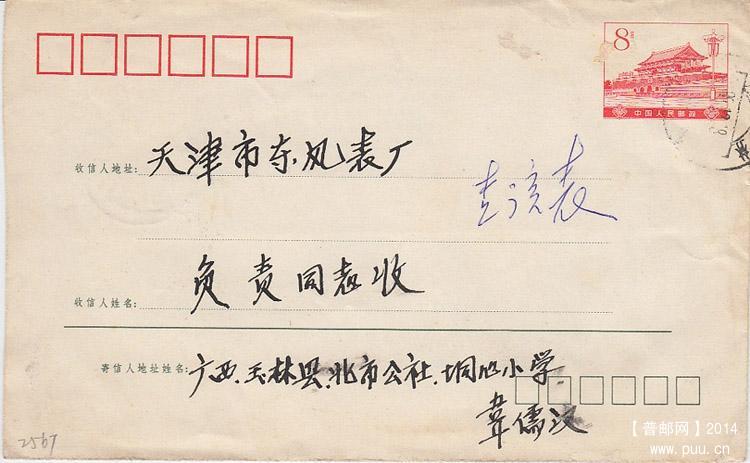 8分
中国人民邮政
收信人地址: 天津市东风表厂
收信人姓名: 负责同志收
寄信人地址姓名: 广西.玉林县.北市公社.垌心小学
韋儒汉
2567
【普邮网】2014
www.puu.cn